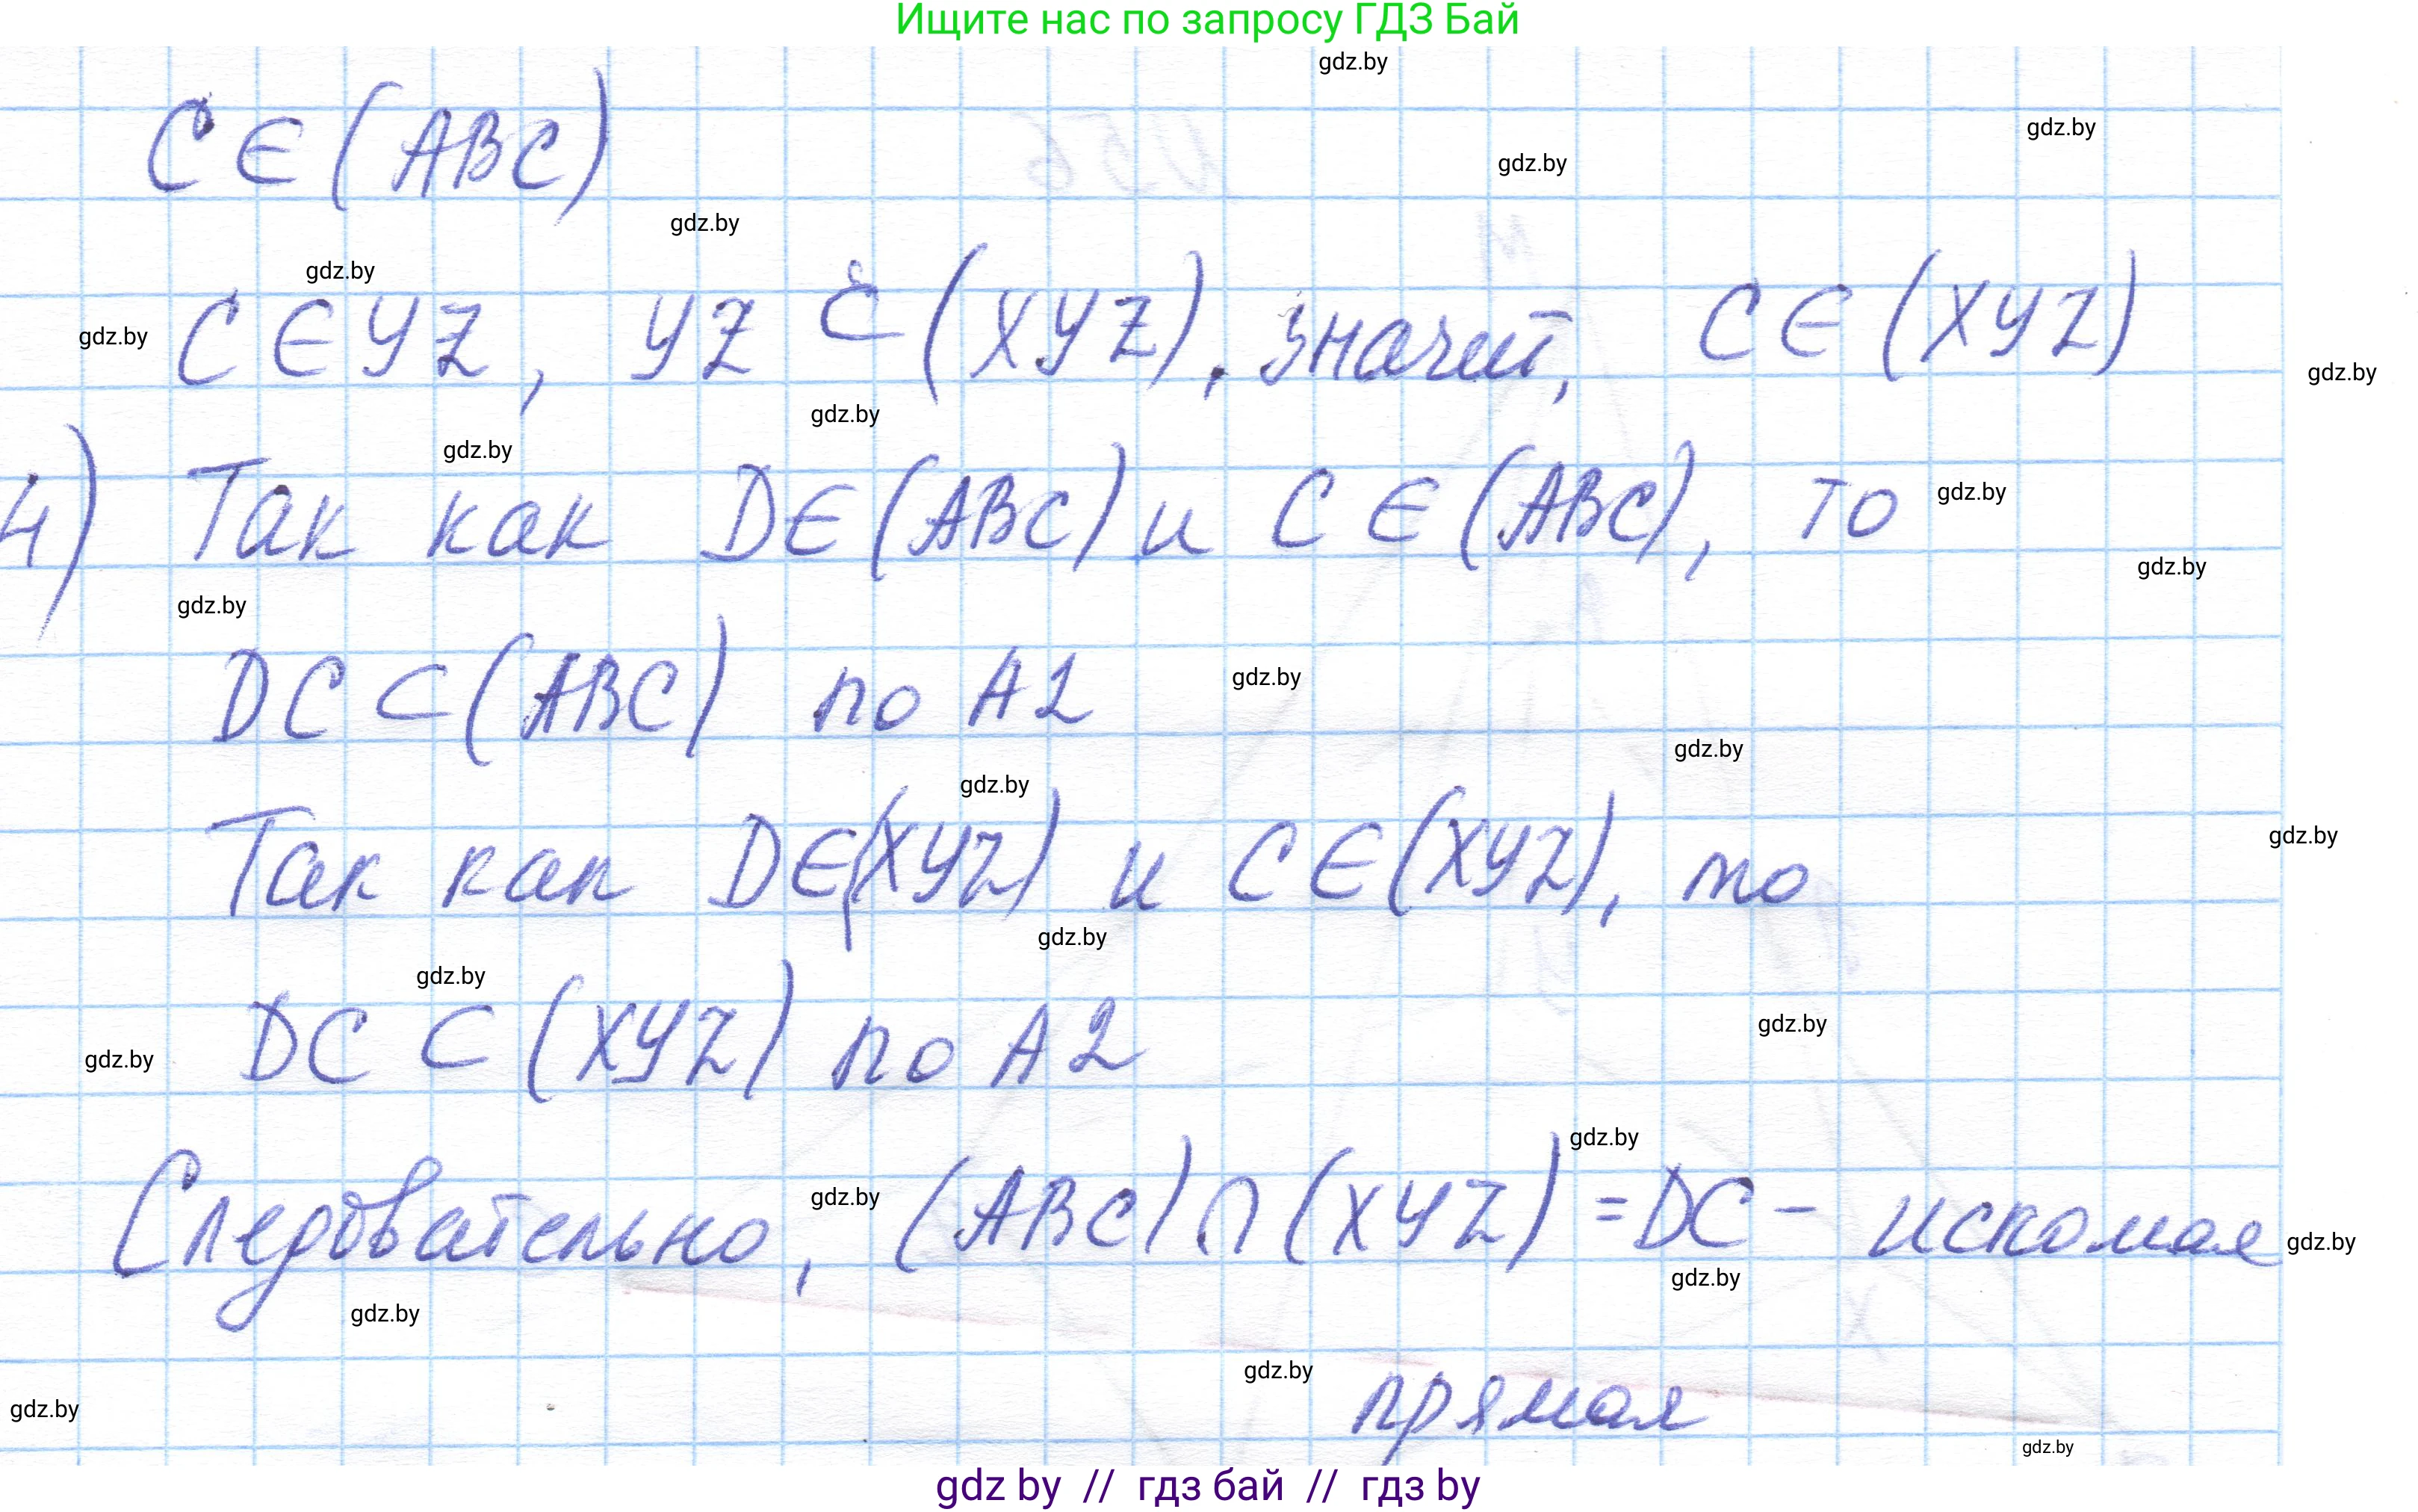 Ищите нас по запросу ГДЗ Бай
gdz.by
gdz.by
gdz.by
C ∈ (ABC)
gdz.by
gdz.by
gdz.by
C ∈ YZ, YZ ⊂ (XYZ), значит, C ∈ (XYZ)
gdz.by
gdz.by
gdz.by
4) Так как D ∈ (ABC) и C ∈ (ABC), то
gdz.by
gdz.by
gdz.by
DC ⊂ (ABC) по A2
gdz.by
gdz.by
gdz.by
Так как D ∈ (XYZ) и C ∈ (XYZ), то
gdz.by
gdz.by
gdz.by
DC ⊂ (XYZ) по A2
gdz.by
gdz.by
gdz.by
gdz.by
Следовательно, (ABC) ∩ (XYZ) = DC - искомая
gdz.by
gdz.by
gdz.by
gdz.by
прямая
gdz.by
gdz.by
gdz by // гдз бай // гдз by